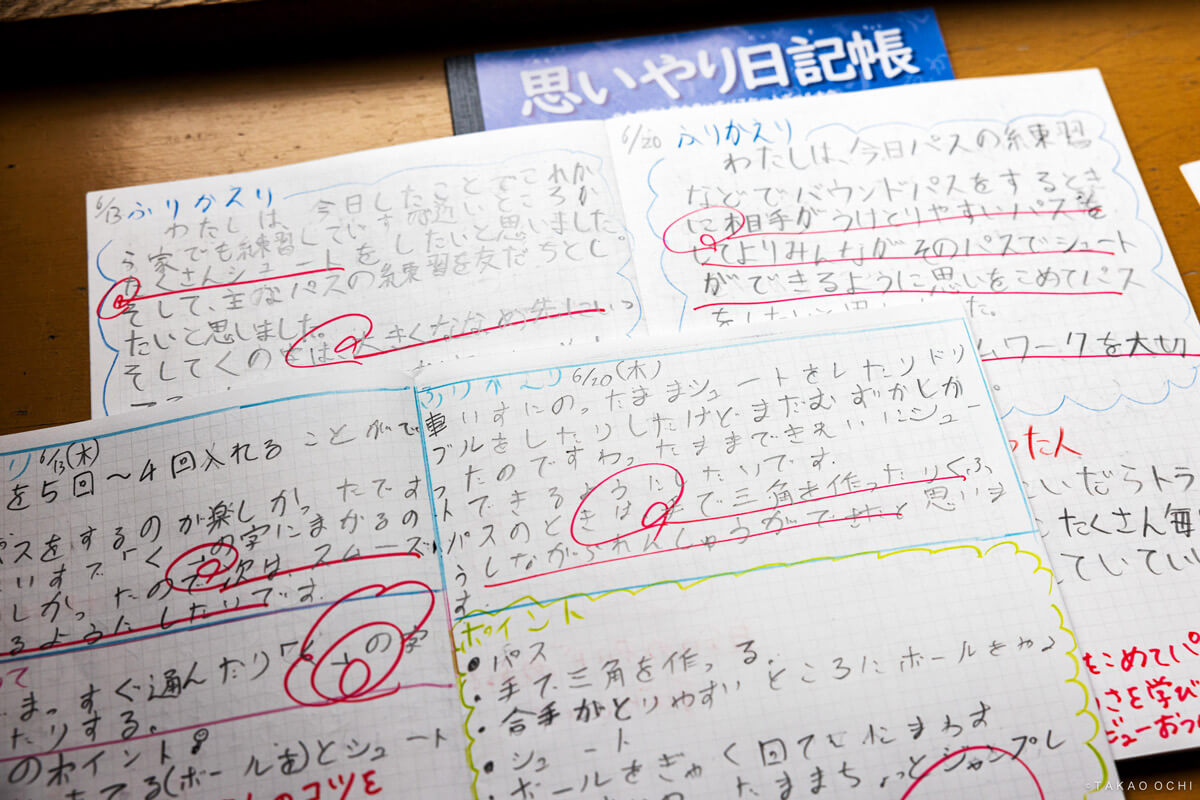 思いやり日記帳
6/13 ふりかえり
わたしは、今日したことでこれか
ら家でも練習していす恐近いところか
たくさんシュートをしたいと思いました。
そして、主なパスの練習を友だちとし
たいと思いました。
そしてくの
6/20 ふりかえり
わたしは、今日パスの練習
などでバウンドパスをするとき
に相手がうけとりやすいパスを
してよりみんながそのパスでシュート
ができるように思いをこめてパス
ムワークを大切
った人
いだらトラ
たくさん毎
ていてい
をこめてパ
さを学び
ビューおっ
り 6/13(木)
を5回〜4回入れる ことがで
パスをするのが楽しかったです
いすで「く」の字にまがるの
しかったので次は、スムーズ
るようにしたいです。
まっすぐ通んたり「く」の字
たりする。
のポイント
てる(ボールを)とシュート
のコツを
ふりかえり 6/20(木)
車いすにのったままシュートをしたりドリ
ブルをしたりしたけどまだむずかしか
ったのですわったままできれいにシュー
トできるようにしたいです。
パスのときは手で三角を作ったりくふ
うしながられんしゅうができたと思いま
す。
ポイント
●パス
・手で三角を作る。
・合手がとりやすいところにボールをやる
●シュート
・ボールをぎゃく回てんにまわす
たままちょっとジャンプし
©TAKAO OCHI